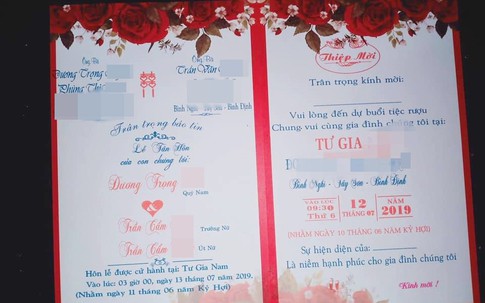 Ông Bà
Dương Trọng
Phùng Thị
Ông Bà
Trần Văn
Bình Nghi - Tây Sơn - Bình Định
Trân trọng báo tin
Lễ Tân Hôn
của con chúng tôi:
Dương Trọng
Quý Nam
Trần Cẩm
Trưởng Nữ
Trần Cẩm
Út Nữ
Hôn lễ được cử hành tại: Tư Gia Nam
Vào lúc: 03 giờ 00, ngày 13 tháng 07 năm 2019.
(Nhằm ngày 11 tháng 06 năm Kỷ Hợi)
Thiệp Mời
Trân trọng kính mời:
Vui lòng đến dự buổi tiệc rượu
Chung vui cùng gia đình chúng tôi tại:
TƯ GIA
Bình Nghi - Tây Sơn - Bình Định
VÀO LÚC
09:30
Thứ 6
12
THÁNG 07
NĂM
2019
(NHẰM NGÀY 10 THÁNG 06 NĂM KỶ HỢI)
Sự hiện diện của:
Là niềm hạnh phúc cho gia đình chúng tôi
Kính mời !